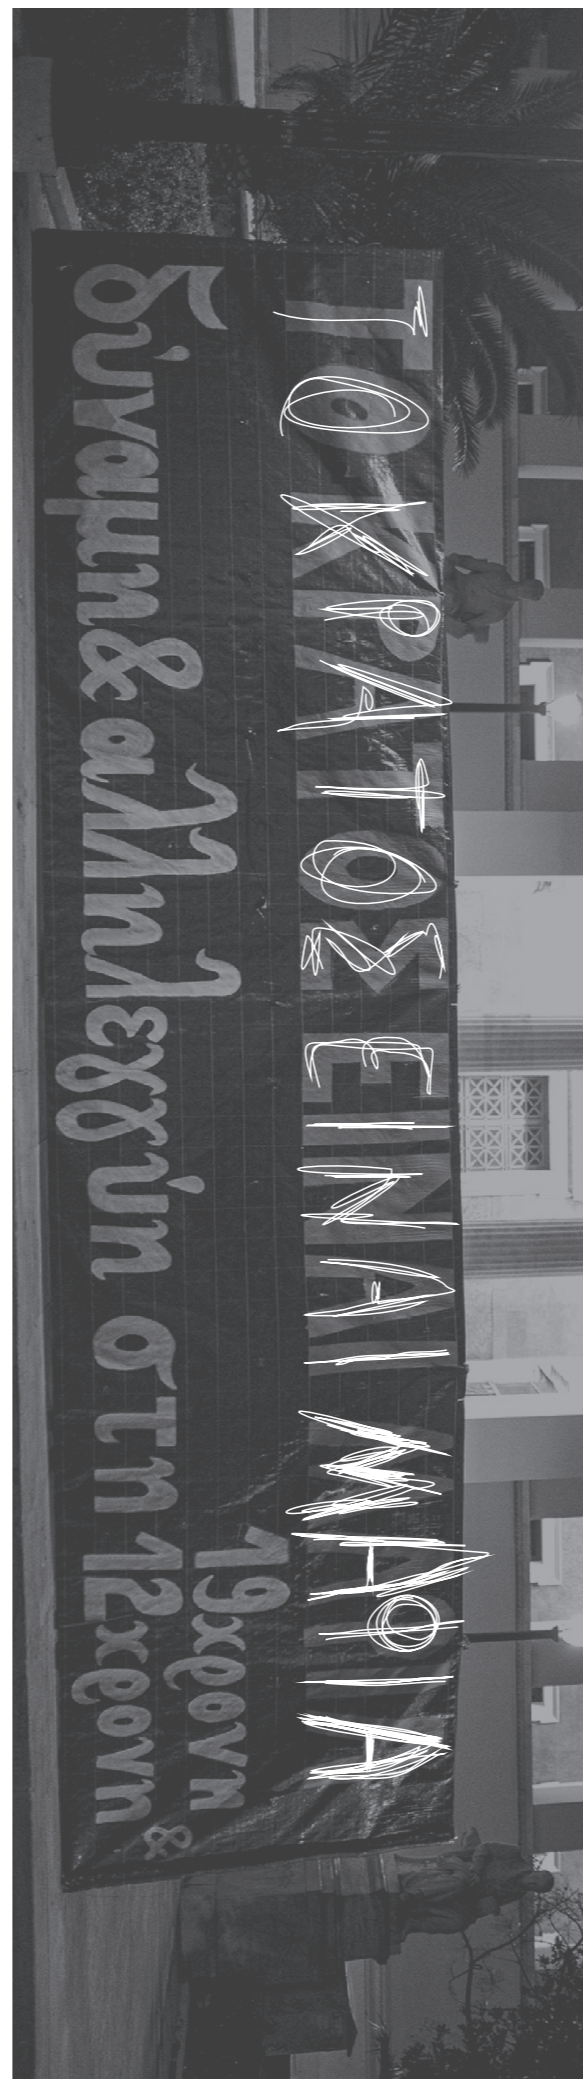 ΤΟ ΚΡΑΤΟΣ ΕΙΝΑΙ ΜΑΦΙΑ
δύναμη & αλληλεγγύη στη 12χρονη &
19χρονη